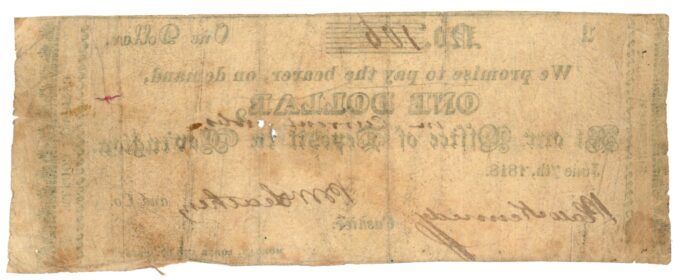 1 No. 106 One Dollar.
We promise to pay the bearer, on demand,
ONE DOLLAR
in current
At our Office of Deposit in Covington.
June 7th, 1818.
Kennedy Leathers, and Co.
Cashier.